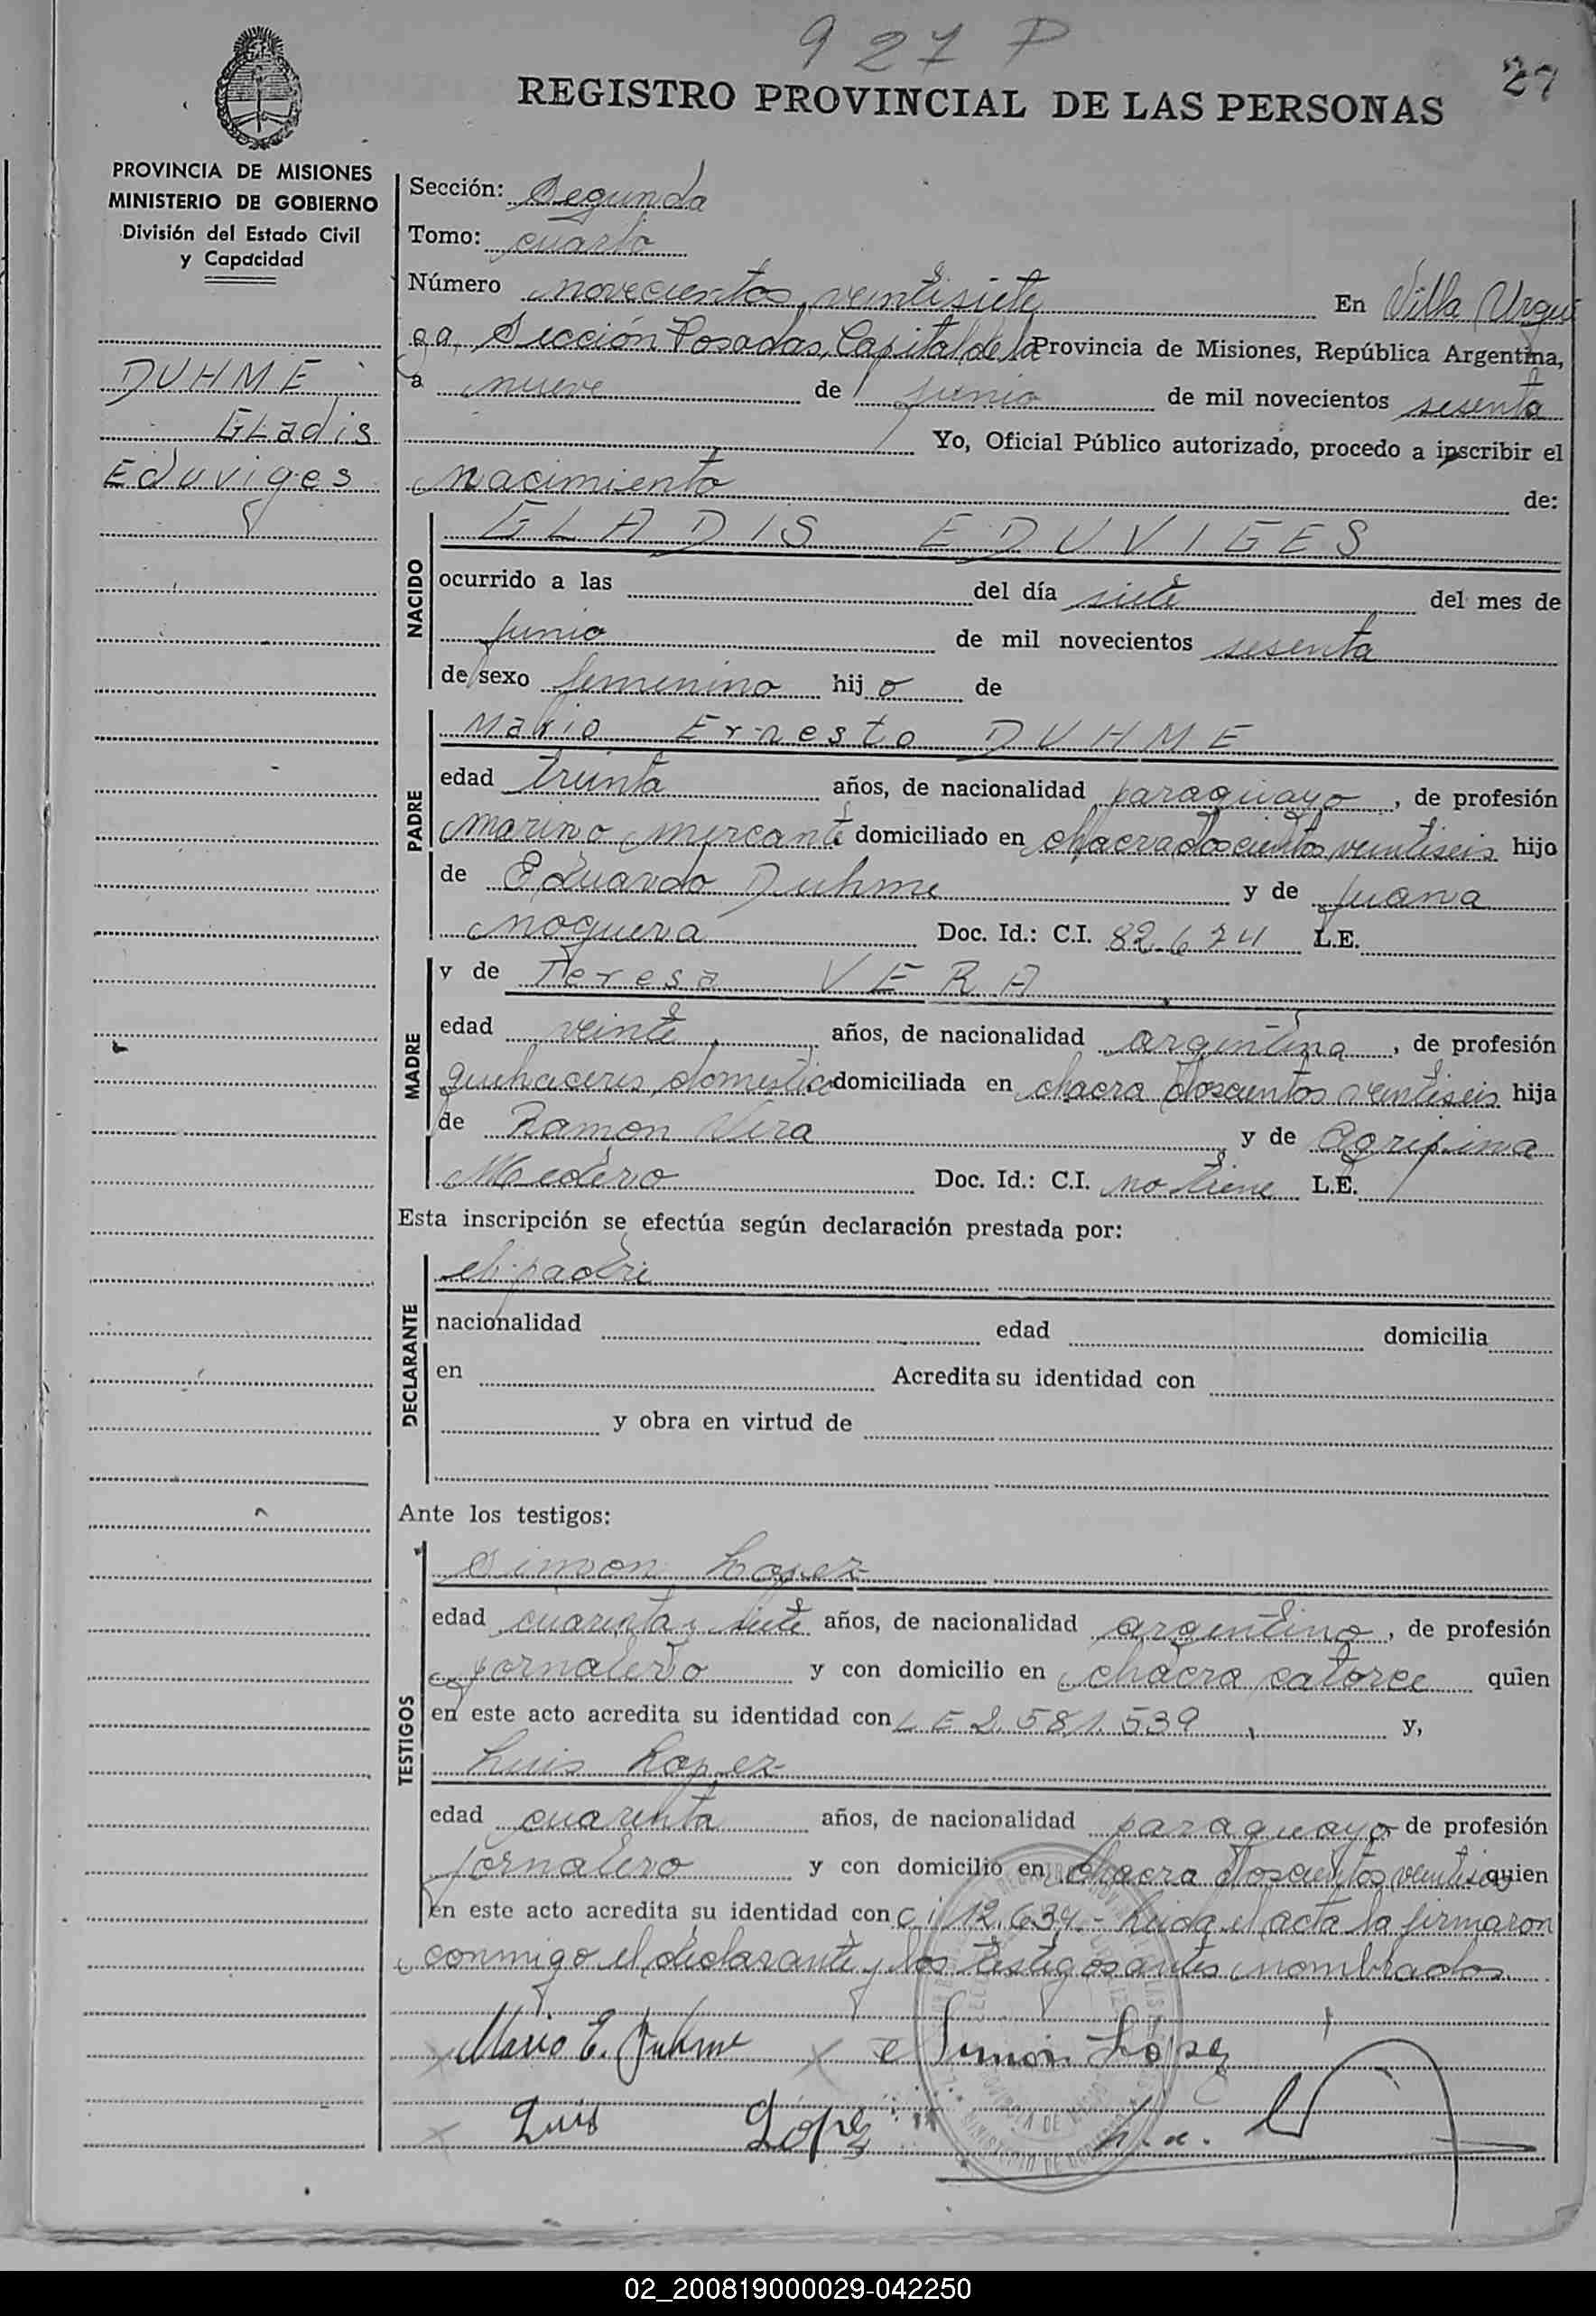 927 P
27
REGISTRO PROVINCIAL DE LAS PERSONAS
PROVINCIA DE MISIONES
MINISTERIO DE GOBIERNO
División del Estado Civil
y Capacidad
DUHME
GLadis
Eduviges
Sección: Segunda
Tomo: cuarto
Número novecientos veintisiete En Villa Urqui
za Sección Posadas, Capital de la Provincia de Misiones, República Argentina,
a nueve de junio de mil novecientos sesenta
Yo, Oficial Público autorizado, procedo a inscribir el
nacimiento de:
NACIDO
GLADIS EDUVIGES
ocurrido a las del día siete del mes de
junio de mil novecientos sesenta
de sexo femenino hijo de
PADRE
Mario Ernesto DUHME
edad treinta años, de nacionalidad paraguayo, de profesión
marino mercante domiciliado en chacra doscientos veintiseis hijo
de Eduardo Duhme y de Juana
Noguera Doc. Id.: C.I. 82.674 L.E.
MADRE
y de Teresa VERA
edad veinte años, de nacionalidad argentina, de profesión
quehaceres domestico domiciliada en chacra doscientos veintiseis hija
de Ramon Vera y de Agripina
Medero Doc. Id.: C.I. no tiene L.E.
Esta inscripción se efectúa según declaración prestada por:
DECLARANTE
el padre
nacionalidad edad domicilia
en Acredita su identidad con
y obra en virtud de
Ante los testigos:
TESTIGOS
Simon Lopez
edad cuarenta y siete años, de nacionalidad argentino, de profesión
jornalero y con domicilio en chacra catorce quien
en este acto acredita su identidad con L E 2.581.539 y,
Luis Lopez
edad cuarenta años, de nacionalidad paraguayo de profesión
jornalero y con domicilio en chacra doscientos veintiseis quien
en este acto acredita su identidad con C i 12.634.- Leida el acta la firmaron
conmigo el declarante y los testigos antes nombrados
Mario E. Duhme Simon López
Luis López
02_200819000029-042250